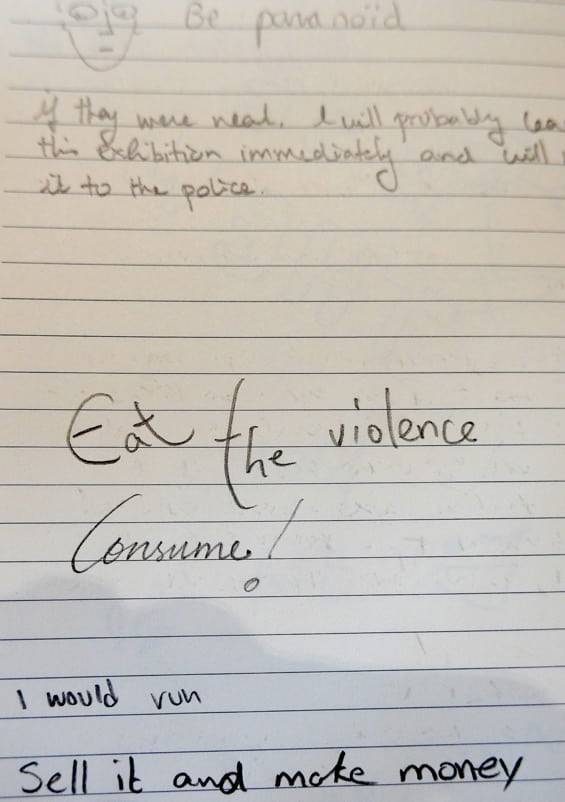 Be paranoid
if they were real. I will probably lea
this exhibition immediately and will
it to the police.
Eat the violence
Consume!
I would run
Sell it and make money